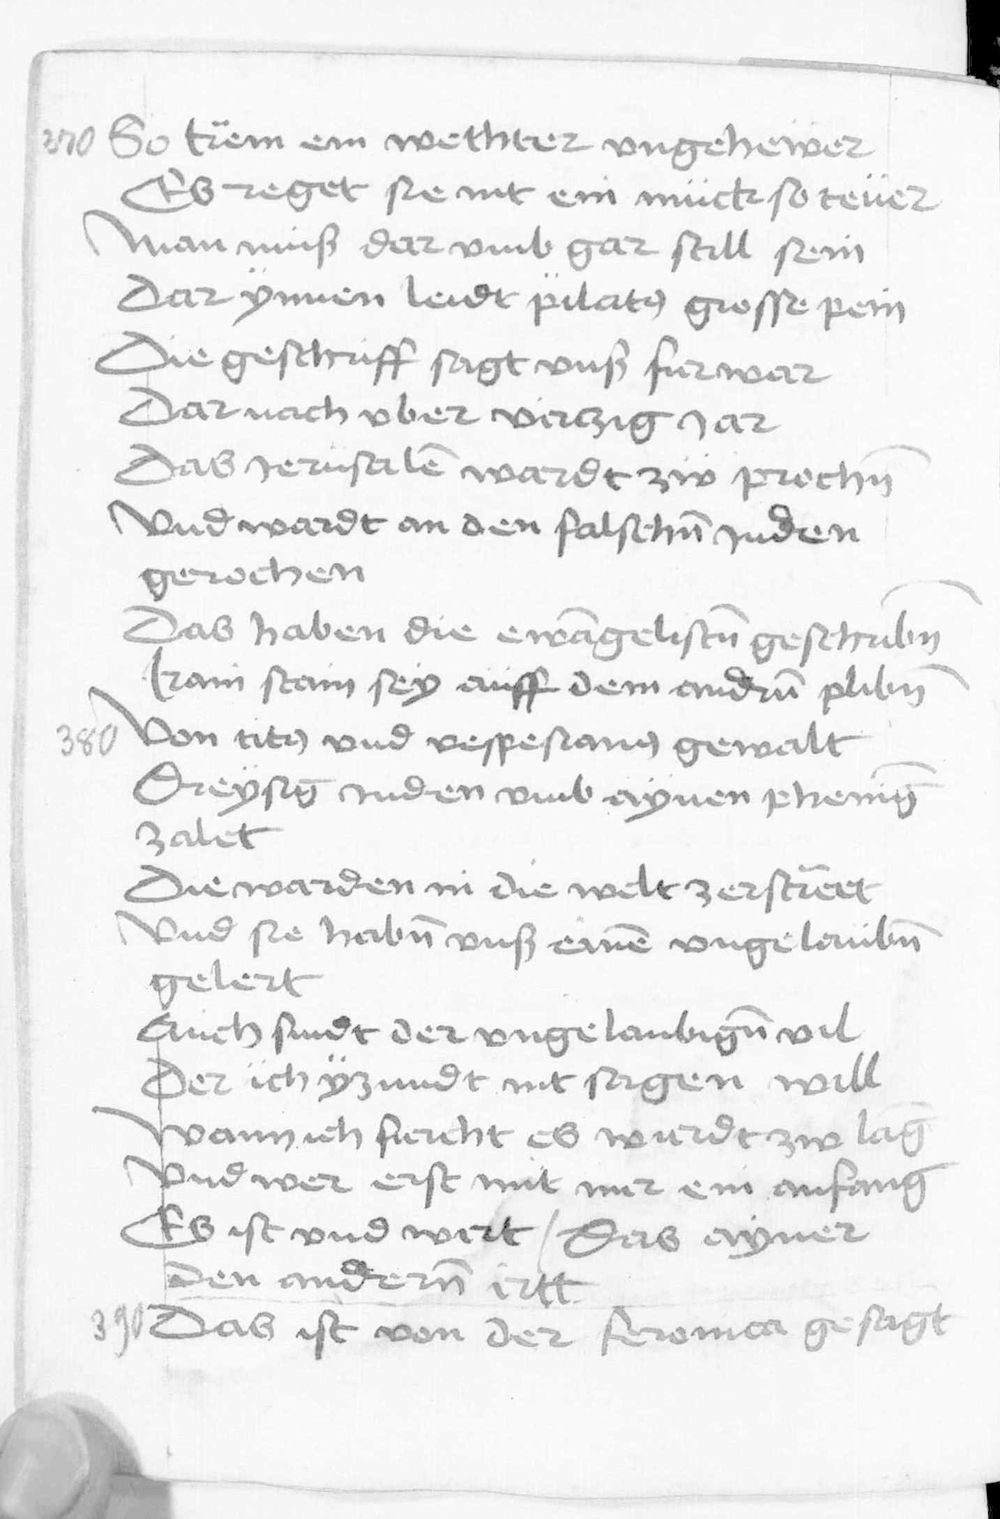 370 So krem ein wethter vngehewer
Es reget sie nit ein mück so teüer
Man muß dar vmb gar still sein
Dar ÿnnen leidt pilatꝯ grosse pein
Die geschrifft sagt vnß fur war
Dar nach vber virczig Jar
Das Jerusalē wardt zw prochn̄
Vnd wardt an den falschn̄ Juden
gerochen
Das haben die ewāgelistn̄ geschribn̄
kain stain seÿ auff dem andrn̄ plibn̄
380 Von titꝯ vnd vespesianꝯ gewalt
Dreÿsig Juden vmb aÿnen phenīg
zalet
Die warden in die welt zerstrēet
Vnd sie habn̄ vnß einē vngelaubn̄
gelert
Auch sindt der vngelaubign̄ vil
Der ich ÿzundt nit sagen will
Wann ich furcht es wurdt zw lāg
Vnd wer erst mit mir ein anfang
Es ist vnd wirt / Das aÿner
den andern̄ irtt
390 Das ist von der feronica gesagt